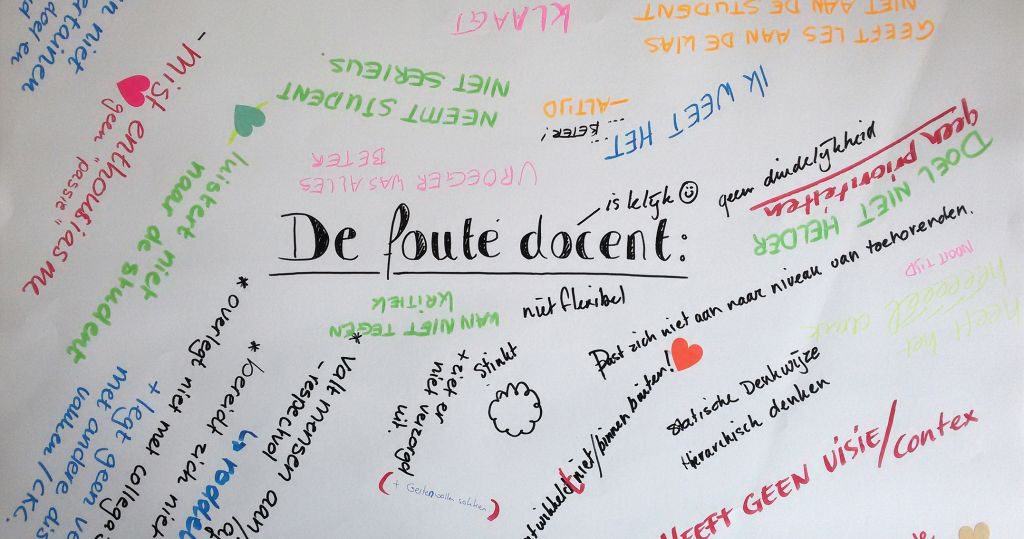 De foute docent:
is kelijk
nut flexibel
KLAAGT
GEEFT LES AAN DE KLAS
NIET AAN DE STUDENT
IK WEET HET
—ALTIJD
BETER!
NEEMT STUDENT
NIET SERIEUS
VROEGER WAS ALLES
BETER
- mist enthousiasme
geen "passie"
luistert niet
naar de student
geen duidelijkheid
geen prioriteiten
DOEL NIET
HELDER
NOOIT TIJD
heeft het
heeeeel druk
Past zich niet aan naar niveau van toehorenden.
KAN NIET TEGEN
KRITIEK
* overlegt niet met collega
* bereidt zich niet
* valt mensen aan/
- respectvol
+ legt geen ve
met andere dis
vakken/CKC.
+ ziet er
niet verzorgd
uit.
Stinkt
twikkeld niet/binnen buiten!
statische Denkwijze
Hierarchisch denken
HEEFT GEEN VISIE/contex